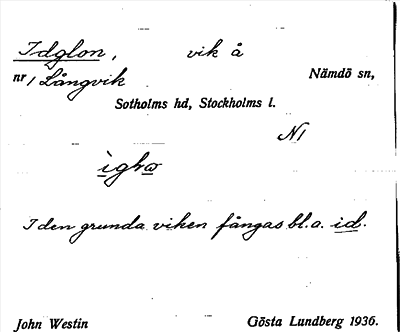 Idglon, vik å
nr 1 Långvik Nämdö sn,
Sotholms hd, Stockholms l.
N1
I den grunda viken fångas bl.a. id.
John Westin Gösta Lundberg 1936.